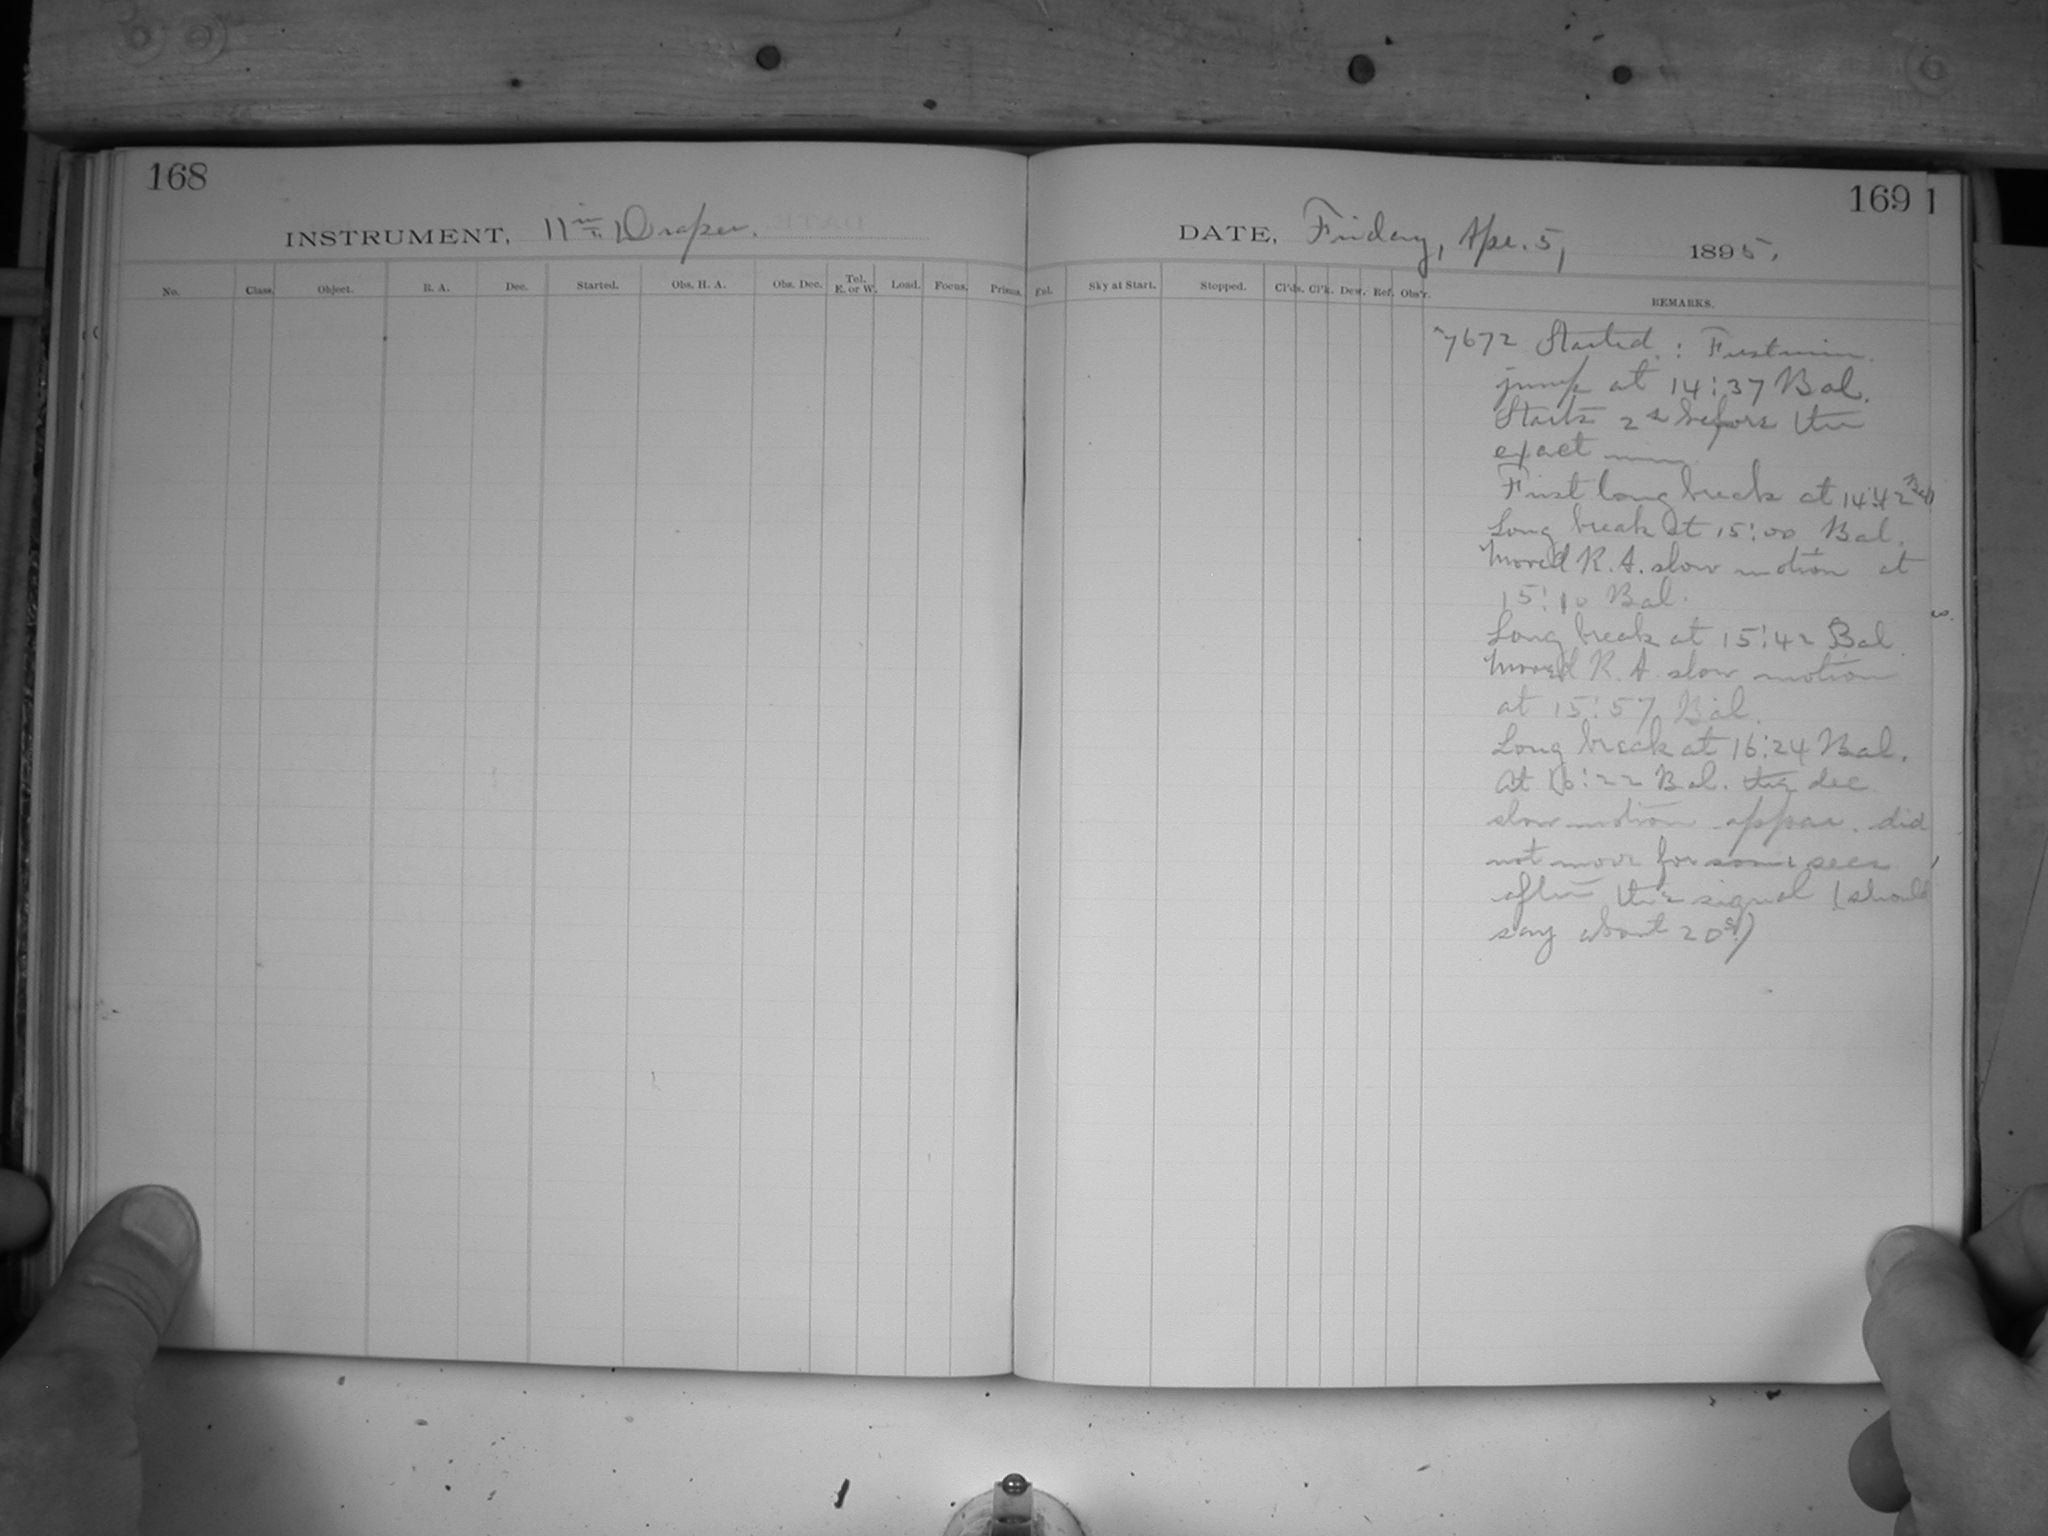 168
INSTRUMENT, 11 in Draper.
No. Class. Object. R. A. Dec. Started. Obs. H. A. Obs. Dec. Tel. E. or W. Load. Focus. Prisms.
169
1
DATE, Friday, Apr. 5, 1895.
Exl. Sky at Start. Stopped. Cl'ds. Cl'k. Dew. Ref. Obs'r. REMARKS.
7672 Started : First min.
jump at 14:37 Bal.
Starts 2s before the
exact min.
First long break at 14:42 Bal
Long break at 15:00 Bal.
Moved R. A. slow motion at
15:10 Bal.
Long break at 15:42 Bal.
Moved R. A. slow motion
at 15:57 Bal.
Long break at 16:24 Bal.
At 16:22 Bal. the dec
slow motion appar. did
not move for some secs
after the signal (should
say about 20s)